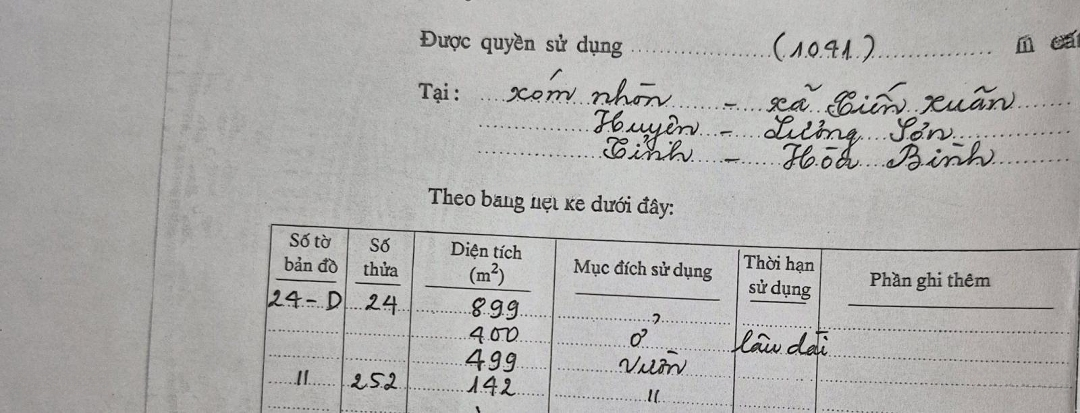 Được quyền sử dụng (1041) m
Tại: xóm nhòn - xã Tiến Xuân
Huyện - Lương Sơn
Tỉnh - Hòa Bình
Theo bảng liệt kê dưới đây:
Số tờ bản đồ | Số thửa | Diện tích (m²) | Mục đích sử dụng | Thời hạn sử dụng | Phần ghi thêm
24-D 24 899
400 ở lâu dài
499 Vườn
11 252 142 "